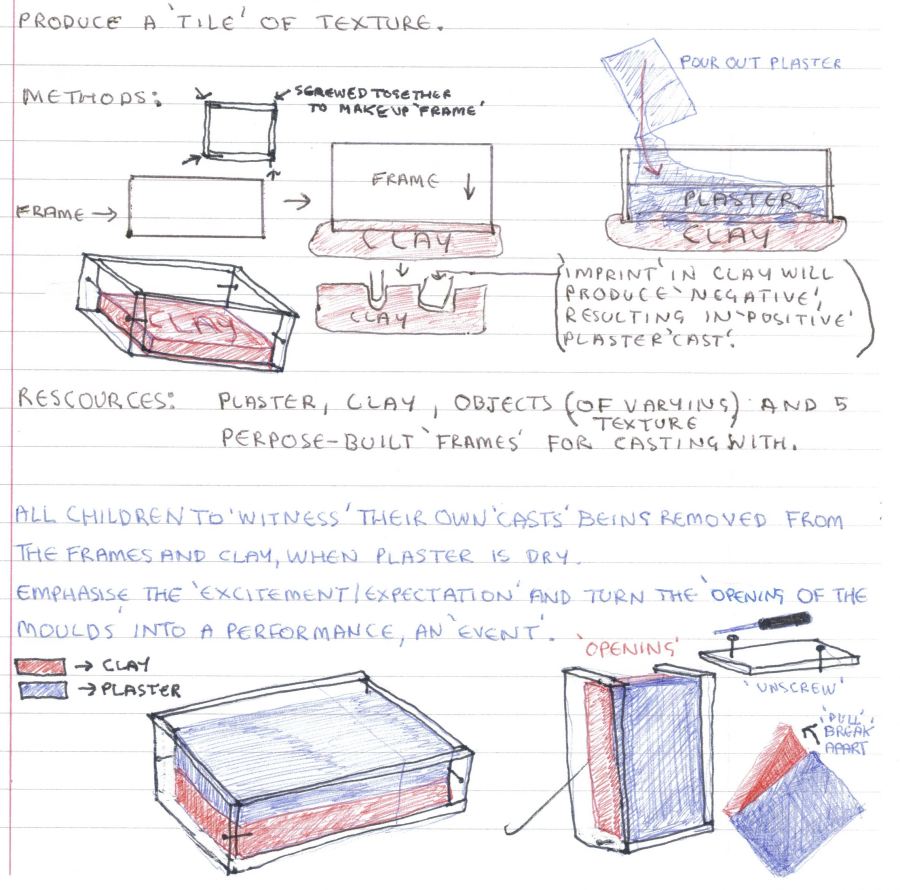 PRODUCE A 'TILE' OF TEXTURE.
METHODS:
SCREWED TOGETHER
TO MAKE UP 'FRAME'
POUR OUT PLASTER
FRAME →
FRAME
CLAY
PLASTER
CLAY
CLAY
CLAY
'IMPRINT' IN CLAY WILL
PRODUCE 'NEGATIVE',
RESULTING IN 'POSITIVE'
PLASTER 'CAST'.
RESCOURCES: PLASTER, CLAY, OBJECTS (OF VARYING) AND 5
TEXTURE
PERPOSE-BUILT 'FRAMES' FOR CASTING WITH.
ALL CHILDREN TO 'WITNESS' THEIR OWN 'CASTS' BEING REMOVED FROM
THE FRAMES AND CLAY, WHEN PLASTER IS DRY.
EMPHASISE THE 'EXCITEMENT/EXPECTATION' AND TURN THE 'OPENING OF THE
MOULDS' INTO A PERFORMANCE, AN 'EVENT'.
→ CLAY
→ PLASTER
'OPENING'
'UNSCREW'
'PULL'
BREAK
APART